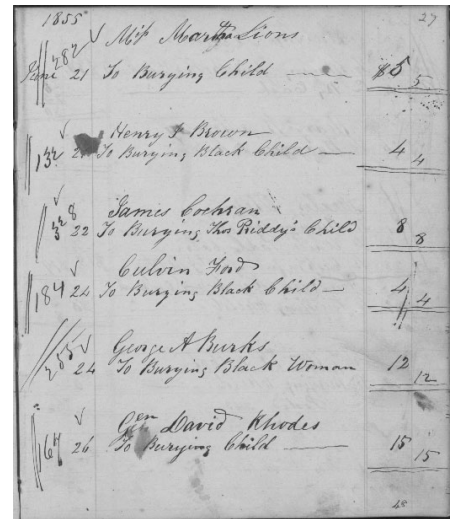 1855 27
282 Miss Martha Lions
June 21 To Burying Child $5 5
Henry F Brown
132 To Burying Black Child 4 4
James Cochran
328 22 To Burying Thos Priddy's Child 8 8
Culvin Ford
184 24 To Burying Black Child 4 4
George A Burks
255 24 To Burying Black Woman 12 12
Gen David Rhodes
167 26 To Burying Child 15 15
48